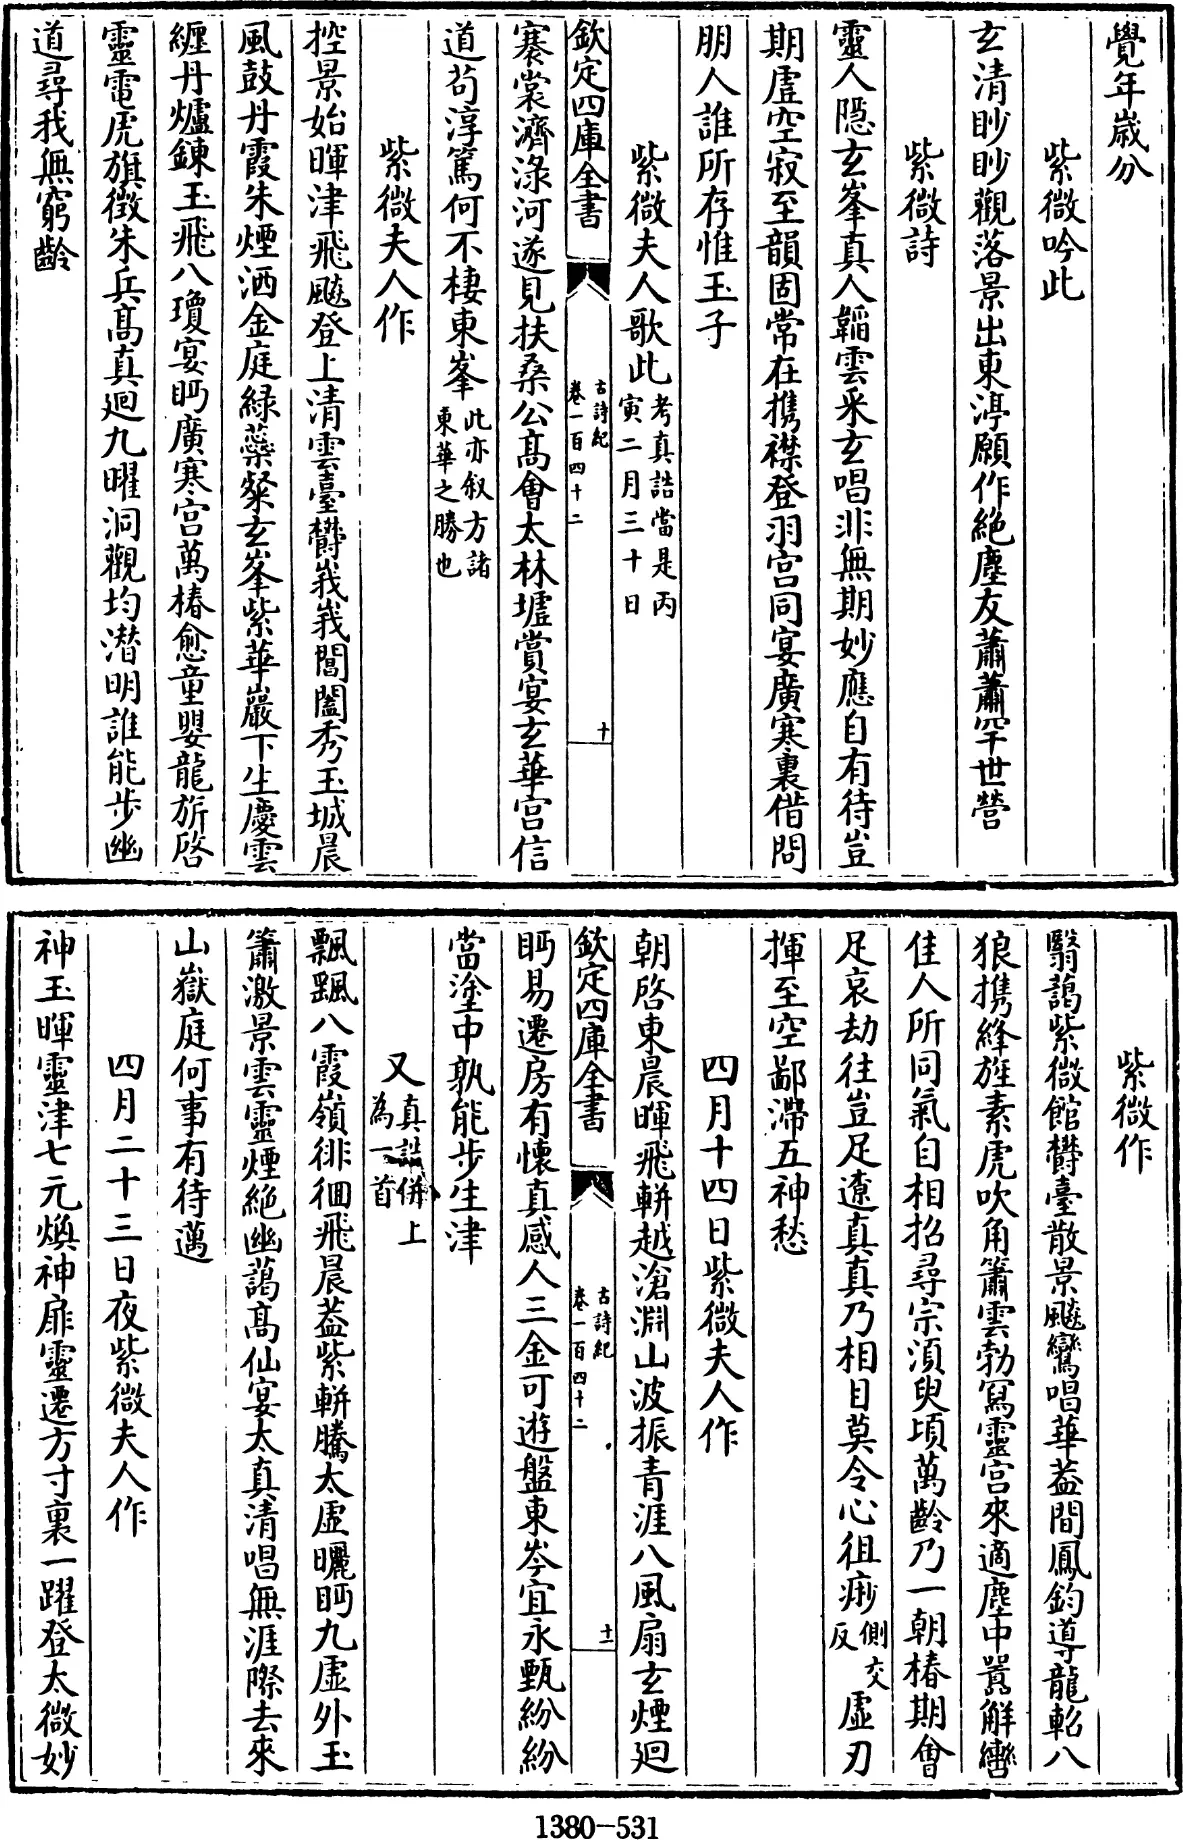 覺年歲分
紫微吟此
玄清眇眇觀落景出東渟願作絶塵友蕭蕭罕世營
紫微詩
靈人隱玄峯真人韜雲采玄唱非無期妙應自有待豈
期虛空寂至韻固常在携襟登羽宫同宴廣寒裏借問
朋人誰所存惟玉子
紫微夫人歌此考真誥當是丙
寅二月三十日
欽定四庫全書
古詩紀
卷一百四十二
十
褰裳濟淥河遂見扶桑公髙會太林墟賞宴玄華宫信
道苟淳篤何不棲東峯此亦叙方諸
東華之勝也
紫微夫人作
控景始暉津飛飈登上清雲臺鬱峩峩閶闔秀玉城晨
風鼓丹霞朱煙洒金庭緑蘂粲玄峯紫華巖下生慶雲
纒丹爐鍊玉飛八瓊宴眄廣寒宫萬椿愈童嬰龍旂啓
靈電虎旗徴朱兵髙真廻九曜洞觀均潜明誰能步幽
道尋我無窮齡
紫微作
翳藹紫微館鬱臺散景飈鸞唱華葢間鳳鈞導龍軺八
狼携絳旌素虎吹角簫雲勃寫靈宫來適塵中囂解轡
佳人所同氣自相招尋宗湏臾頃萬齡乃一朝椿期㑹
足哀劫往豈足遼真真乃相目莫令心徂痟側交
反虚刃
揮至空鄙滯五神愁
四月十四日紫微夫人作
朝啓東晨暉飛軿越滄淵山波振青涯八風扇玄煙廻
欽定四庫全書
古詩紀
卷一百四十二
十一
眄易遷房有懷真感人三金可遊盤東岑宜永甄紛紛
當塗中孰能步生津
又真誥併上
為一首
飄飄八霞嶺徘徊飛晨葢紫軿騰太虚䁹眄九虚外玉
簫激景雲靈煙絶幽藹髙仙宴太真清唱無涯際去來
山嶽庭何事有待邁
四月二十三日夜紫微夫人作
神玉暉靈津七元煥神扉靈遷方寸裏一躍登太微妙
1380-531